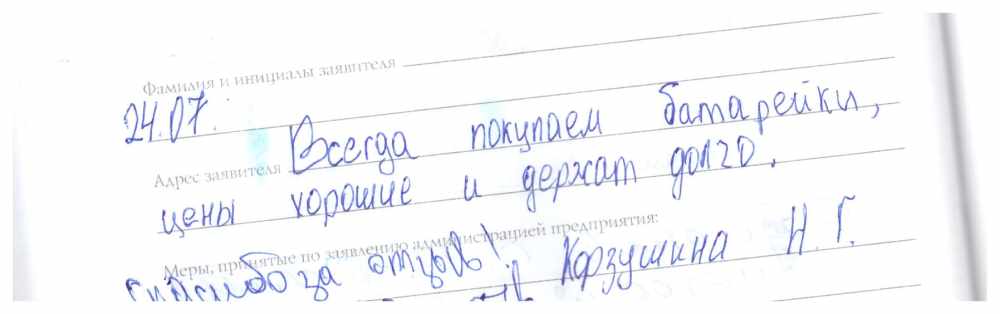 Фамилия и инициалы заявителя
24.07.
Всегда покупаем батарейки,
Адрес заявителя
цены хорошие и держат долго.
Меры, принятые по заявлению администрацией предприятия:
Спасибо за отзыв! Корзушина Н. Г.